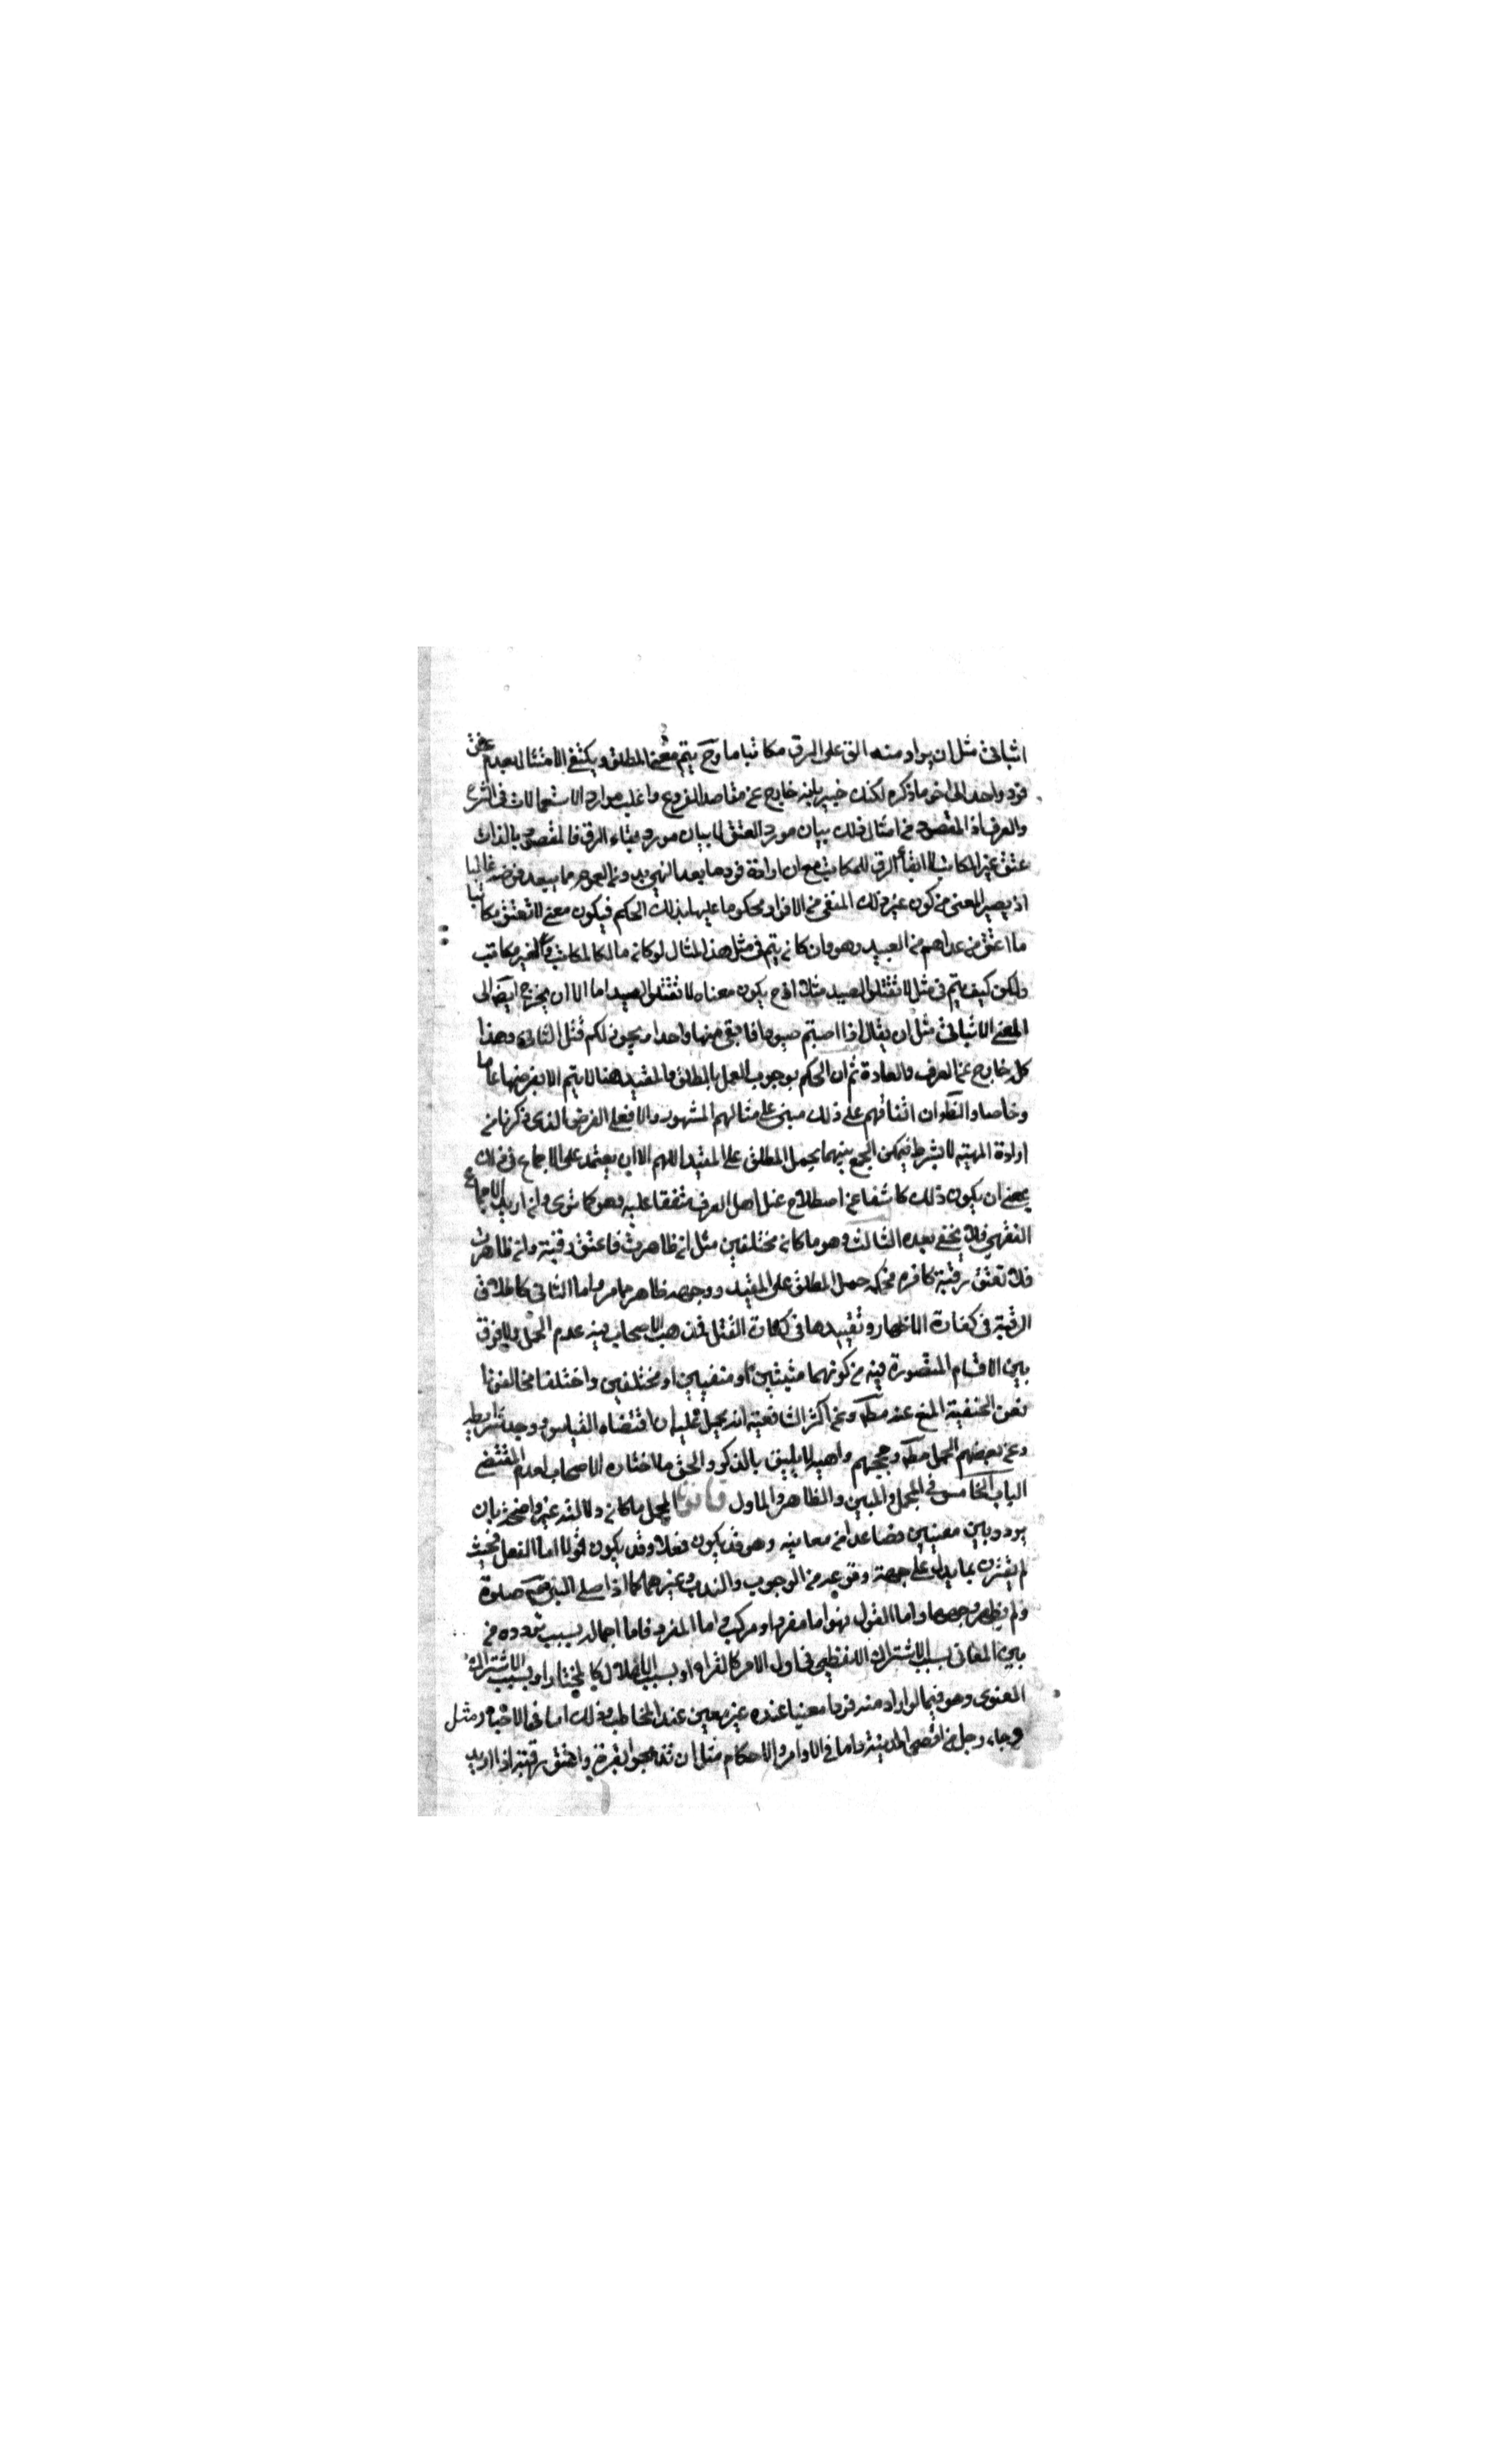 اثباتي مثل ان يراد منه الق على الرق مكاتبا ما وح يتم معنى المطلق ويكتفى الامتثال بعدم عتق
فرد واحد الى اخر ما ذكره لكنك خبير بانه خارج عن مقاصد الفروع واغلب موارد الاستعمالات في الشرع
والعرف اذ المقصود من امثال ذلك بيان مورد العتق لا بيان مورد بقاء الرق فالمقصود بالذات
عتق غير المكاتب لا ابقاء الرق للمكاتب مع ان ارادة فرد ما بعد النهي بدون العموم مما يبعد فرضه غالبا
اذ يصير المعنى من كون غير ذلك المنفي من الافراد محكوما عليها بذلك الحكم فيكون معنى لا تعتق مكاتبا
ما اعتق من عداهم من العبيد وهو وان كان يتم في مثل هذا المثال لو كان مالكا لمكاتب ولغير مكاتب
ولكن كيف يتم في مثل لا تقتل الصيد مثلا اذ ح يكون معناه لا تقتل صيدا ما الا ان يخرج ايضا الى
المعنى الاثباتي مثل ان يقال اذا اصبتم صيودا فابقى منها واحدا ويجوز لكم قتل الباقي وهذا
كله خارج عن العرف والعادة ثم ان الحكم بوجوب العمل بالمطلق والمقيد هنا لا يتم الا بفرضهما عاما
وخاصا والظ ان اتفاقهم على ذلك مبني على مثالهم المشهور والا فعلى الفرض الذي ذكرنا من
ارادة المهية لا بشرط فيمكن الجمع بينهما بحمل المطلق على المقيد اللهم الا ان يعتمد على الاجماع في ذلك
بمعنى ان يكون ذلك كاشفا عن اصطلاح عند اهل العرف متفقا عليه وهو كما ترى وان اريد الاجماع
الفقهي فلا يخفى بعده الثالث وهو ما كان مختلفين مثل ان ظاهرت فاعتق رقبة وان ظاهرت
فلا تعتق رقبة كافرة فحكمه حمل المطلق على المقيد ووجهه ظاهر مما مر واما الثاني كاطلاق
الرقبة في كفارة الظهار وتقييدها في كفارة القتل فمذهب الاصحاب فيه عدم الحمل ولا فرق
بين الاقسام المتصورة فيه من كونهما مثبتين او منفيين او مختلفين واختلفا مخالفونا
فعن الحنفية المنع عنه مطلقا وعن اكثر الشافعية انه يحمل عليه ان اقتضاه القياس ووجد شرايطه
وعن بعضهم الحمل مطلقا وحججهم واهية لا يليق بالذكر والحق ما اختاره الاصحاب لعدم المقتضى
الباب الخامس في المجمل والمبين والظاهر والماول قانون المجمل ما كان دلالته غير واضحة بان
يردد بين معنيين فصاعدا من معانيه وهو قد يكون فعلا وقد يكون قولا اما الفعل فحيث
لم يقترن بما يدل على جهة وقوعه من الوجوب والندب وغيرهما كما اذا صلى النبي ص صلوة
ولم يظهر وجهها واما القول فهو اما مفرد او مركب اما المفرد فاما اجماله بسبب تردده من
بين المعاني بسبب الاشتراك اللفظي في اول الامر كالقرء او بسبب الاعلال كالمختار او بسبب الاشتراك
المعنوي وهو فيما لو اراد منه فردا معينا عنده غير معين عند المخاطب وذلك اما في الاخبار مثل
وجاء رجل من اقصى المدينة واما في الاوامر والاحكام مثل ان تذبحوا بقرة واعتق رقبة اذا اريد